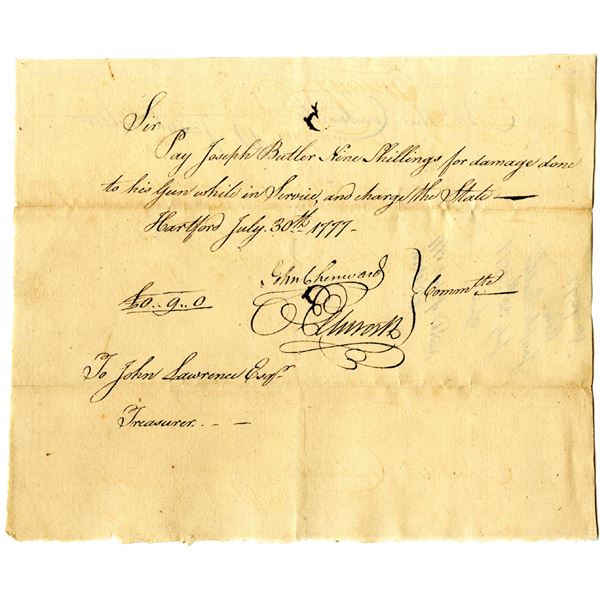 Sir
Pay Joseph Butler Nine Shillings for damage done
to his Gun while in Service, and charge the State —
Hartford July 30th 1777 -
John Chenward
£0..9..0
Committe
To John Lawrence Esqr.
Treasurer. - —